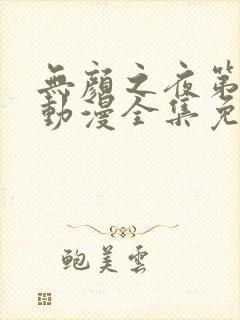 無顏之夜第
動漫全集免
鮑美雲